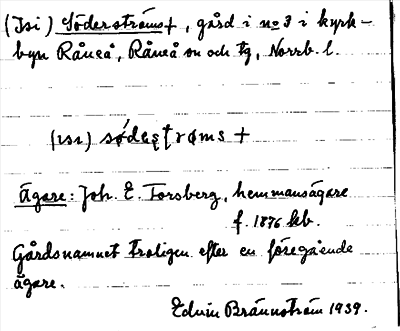 (Isi) Söderströms +, gård i no 3 i kyrk-
byn Råneå, Råneå sn och tg, Norrb. l.
(ısı) södeʂtrøms +
Ägare: Joh. E. Forsberg, hemmansägare
f. 1876 kb.
Gårdsnamnet troligen efter en föregående
ägare.
Edvin Brännström 1939.